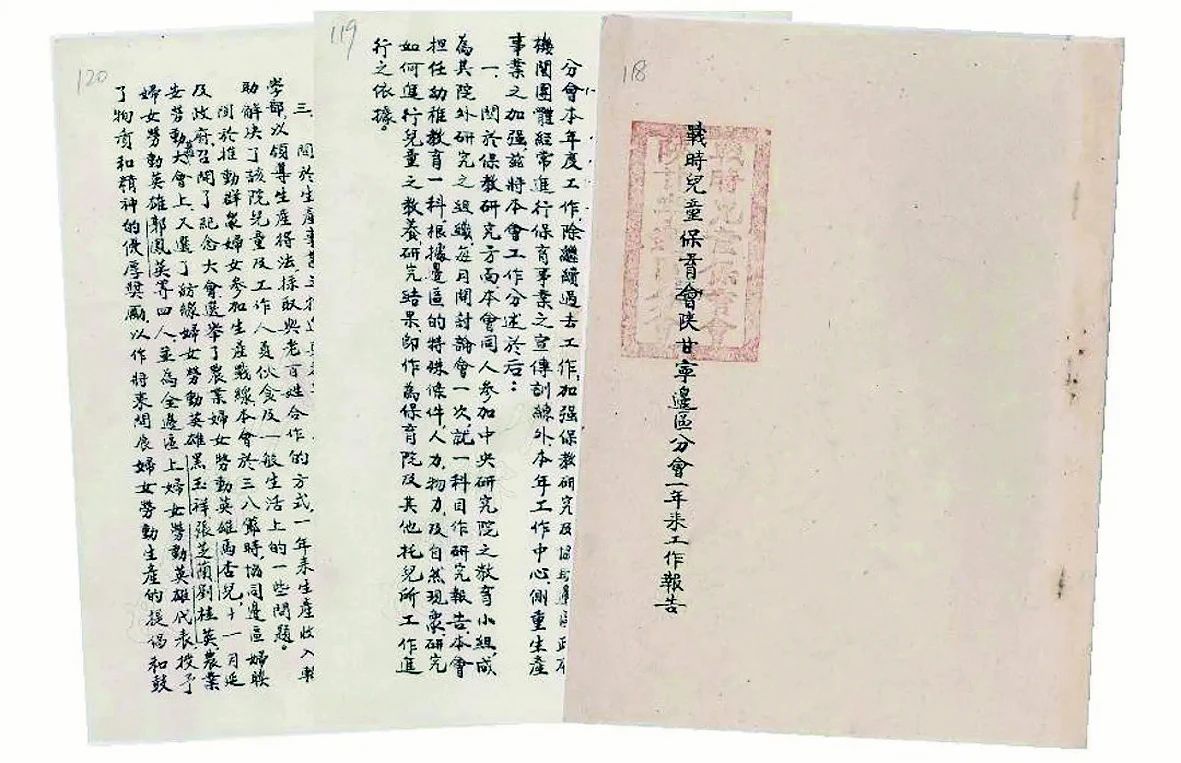 118
戰時兒童保育會
戰時兒童保育會陝甘寧邊區分會一年来工作報告
119
分會本年度工作，除繼續過去工作，加强保教研究及協助邊區政府
機関團體經常進行保育事業之宣傳訓練外，本年工作中心，側重生產
事業之加强，茲將本會工作分述於后：
一、関於保教研究方面本會同人參加中央研究院之教育小組，成
為其院外研究之組織，每月開討論會一次，就一科目作研究報告，本會
担任幼稚教育一科根據邊區的特殊條件，人力，物力，及自然現象，研究
如何進行兒童之教養研究結果，即作為保育院及其他托兒所工作進
行之依據。
120
三、関於生產事業
學部，以領導生產得法採取與老百姓合作的方式，一年来生產收入較
助解決了該院兒童及工作人員伙食及一般生活上的一些問題。
関於推動群衆婦女參加生產戰線本會於三八節時，協同邊區婦聯
及政府召開了紀念大會，選舉了農業婦女勞動英雄馬杏兒，十一月延
安勞動大會上，又選了紡線婦女勞動英雄黑玉祥張芝蘭劉桂英農業
婦女勞動英雄郭鳳英等四人，並為全邊區上婦女勞動英雄代表授予
了物質和精神的優厚奬勵，以作將来開展婦女勞動生產的提倡和鼓